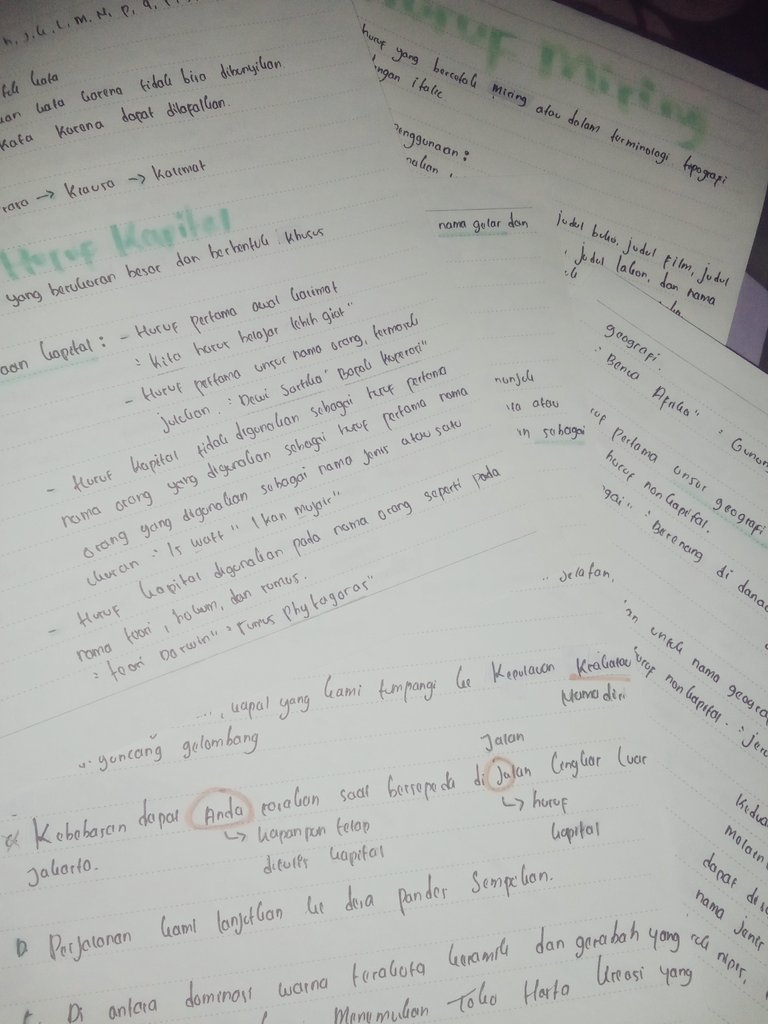 h, J, k, l, m, N, p, q, r
kata
kata karena tidak bisa dibunyikan
kata karena dapat dilafalkan.
→ Klausa → Kalimat
Huruf Kapital
yang berukuran besar dan berbentuk khusus
aan kapital : - Huruf pertama awal kalimat
: kita harus belajar lebih giat"
- Huruf pertama unsur nama orang, termasuk
julukan : Dewi Sartika" Bapak Koperasi"
- Huruf kapital tidak digunakan sebagai huruf pertama
nama orang yang digunakan sebagai huruf pertama nama
orang yang digunakan sebagai nama jenis atau satu
ukuran : 15 watt" Ikan mujair"
- Huruf kapital digunakan pada nama orang seperti pada
nama teori, hukum, dan rumus.
: teori Darwin" : rumus phytagoras"
Huruf Miring
huruf yang bercetak miring atau dalam terminologi tipografi
dengan italic
penggunaan :
nama gelar dan
judul buku, judul film, judul
, judul lakon, dan nama
nunjuk
ia atau
sebagai
geografi.
: Benua Afrika" :
pertama unsur geografi
huruf nonkapital.
: Berenang di
untuk nama
huruf nonkapital. :
Kedua
dapat
nama jenis
selatan.
...., kapal yang kami tumpangi ke Kepulauan Krakatau
Nama diri
guncang gelombang
Jalan
Kebebasan dapat Anda rasakan saat bersepeda di Jalan Lingkar Luar
↳ kapanpun tetap ↳ huruf
Jakarta. ditulis kapital kapital
D Perjalanan kami lanjutkan ke desa pandes Sempilan.
Di antara dominasi warna terakota keramik dan gerabah yang
Menemukan Toko Harto Kreasi yang